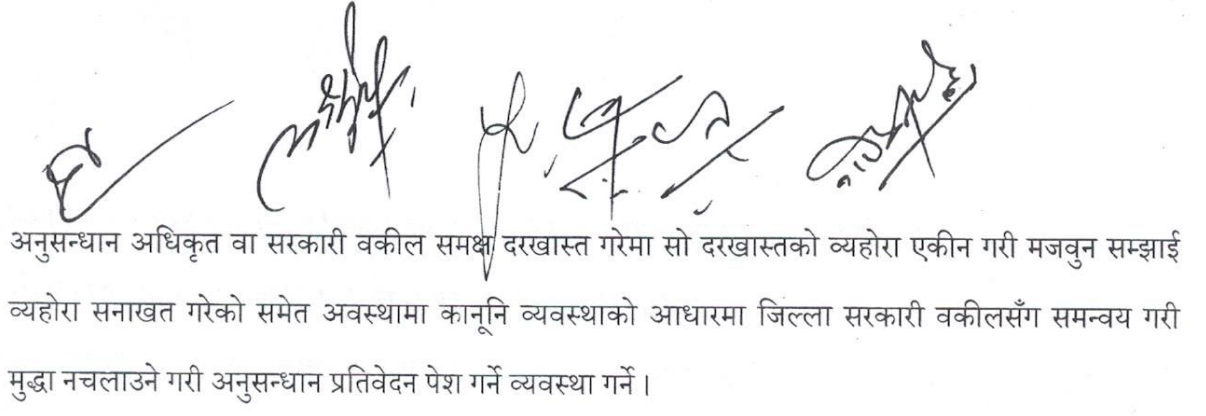 अनुसन्धान अधिकृत वा सरकारी वकील समक्ष दरखास्त गरेमा सो दरखास्तको व्यहोरा एकीन गरी मजवुन सम्झाई
व्यहोरा सनाखत गरेको समेत अवस्थामा कानूनि व्यवस्थाको आधारमा जिल्ला सरकारी वकीलसँग समन्वय गरी
मुद्धा नचलाउने गरी अनुसन्धान प्रतिवेदन पेश गर्ने व्यवस्था गर्ने ।